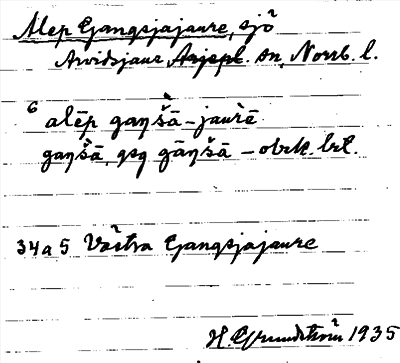 Alep Gangsjajaure, sjö
Arvidsjaur sn, Norrb. l.
6 alēp gaŋšā-jaurē
gaŋšā, gāŋšā - obek.
34a5 Västra Gangsjajaure
H Grundström 1935